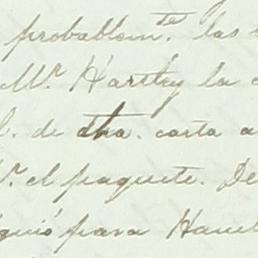 probablem.te las
Mr. Hartley la
de dha. carta a
el paquete. De
guió para Hav